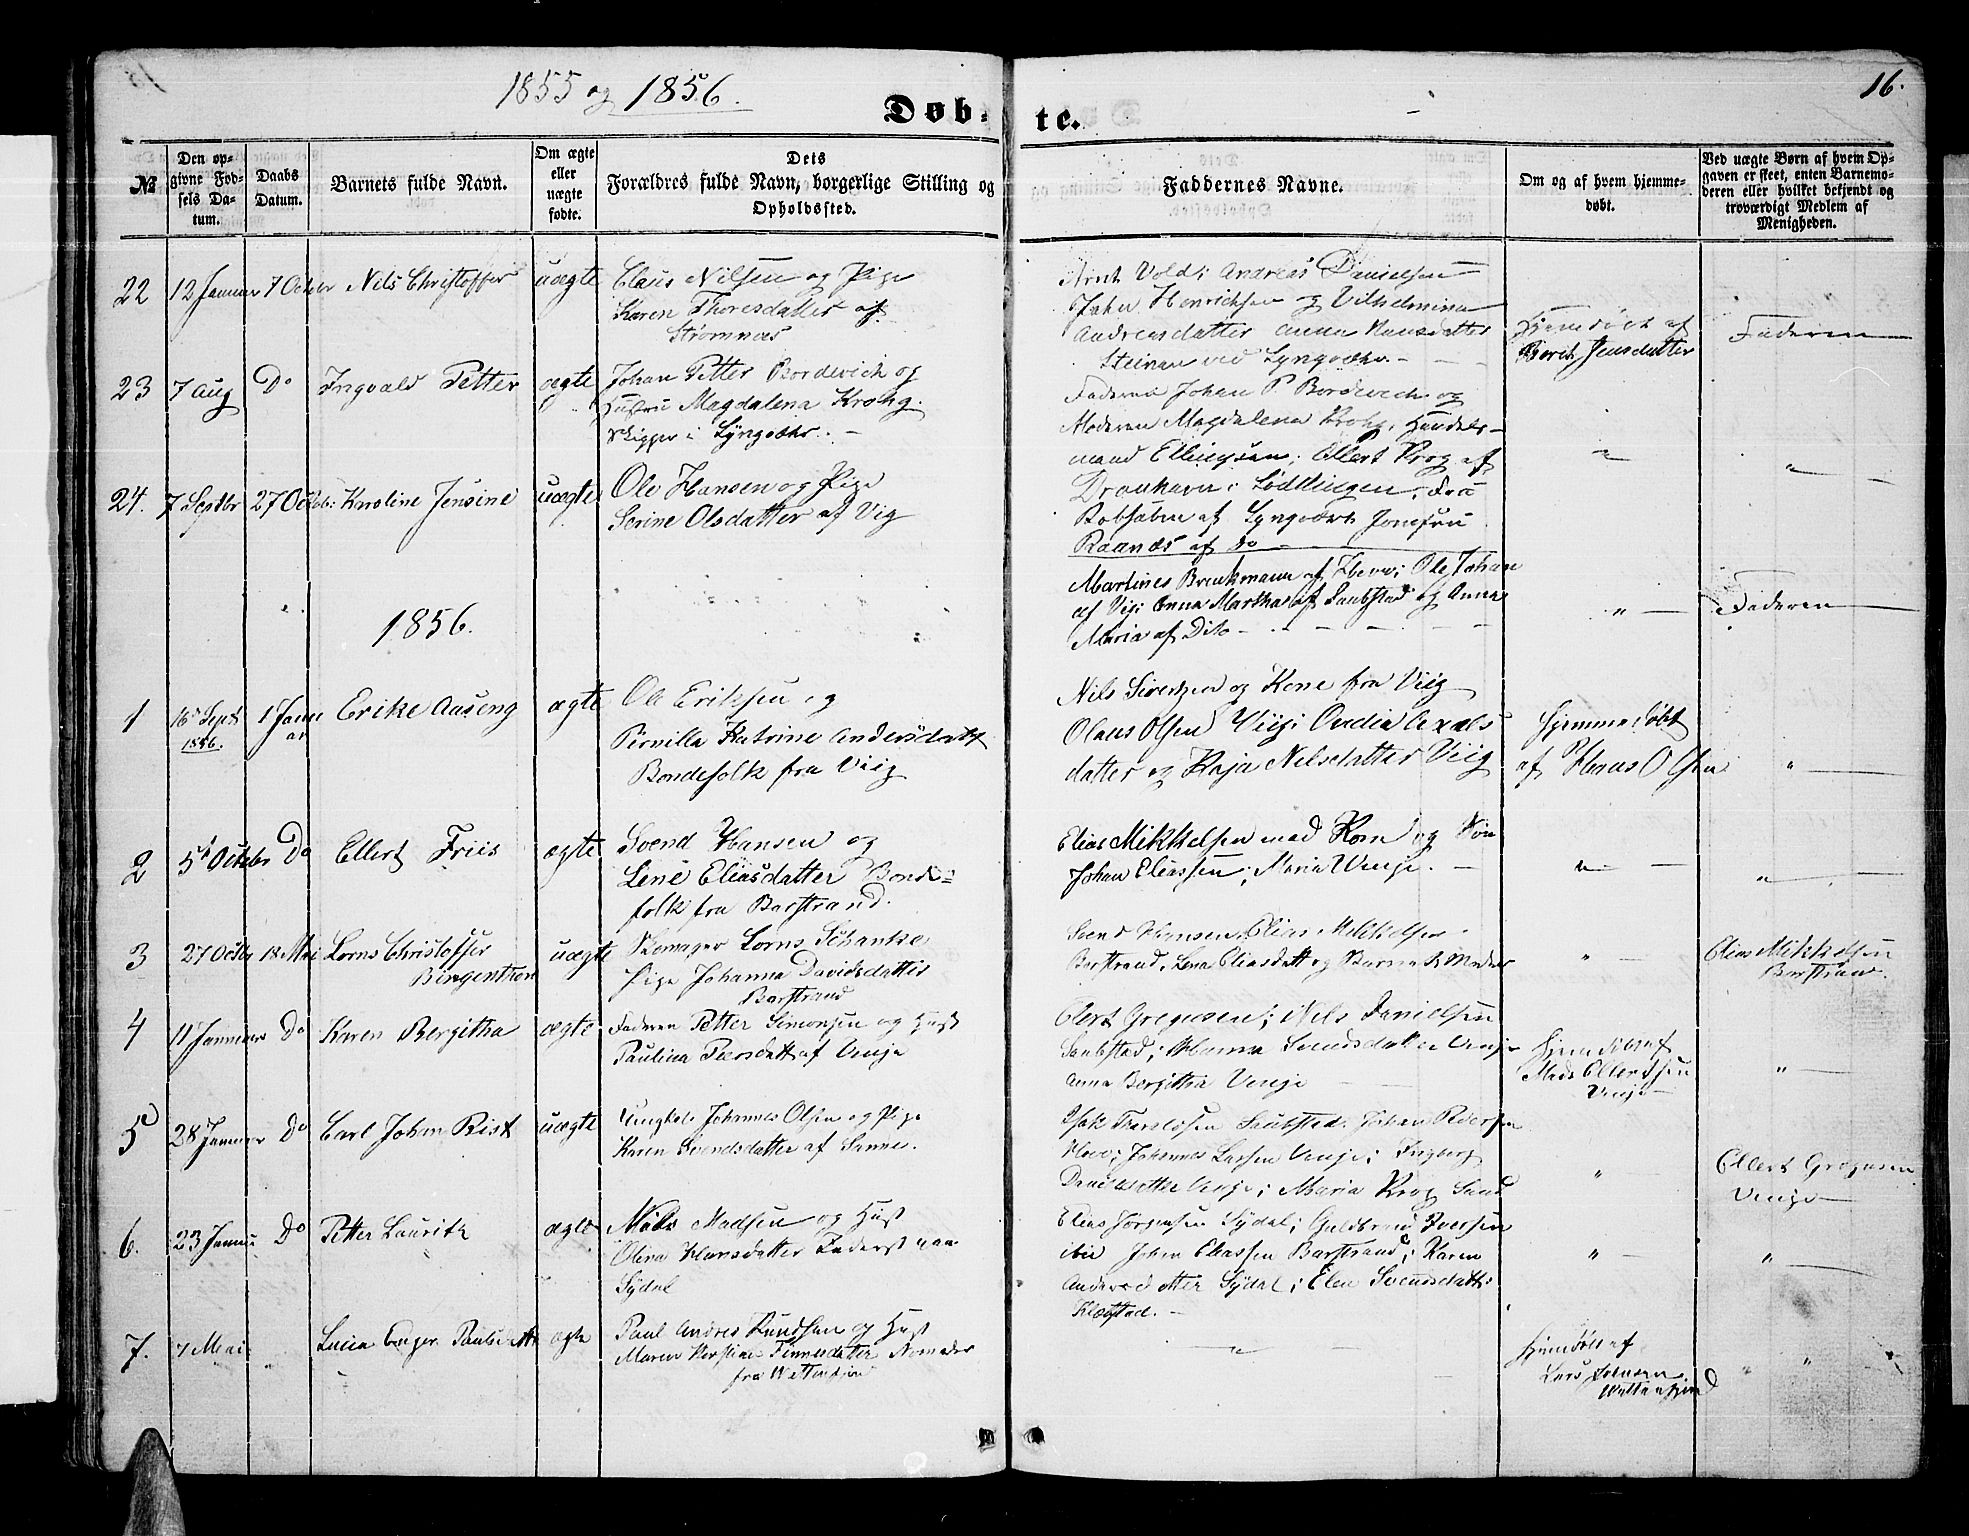 1855 og 1856.
16.
Døb-
te.
№
Den op-
givne Fød-
sels Da-
tum.
Daabs
Datum.
Barnets fulde Navn.
Om ægte
eller
uægte
fødte.
Dets
Forældres fulde Navn, borgerlige Stilling og
Opholdssted.
Faddernes Navne.
Om og af hvem hjemme-
døbt.
Ved uægte Børn af hvem Op-
gaven er skeet, enten Barnemo-
deren eller hvilket bekjendt og
troværdigt Medlem af
Menigheden.
22 12 Januar 7 Octbr Nils Christoffer uægte
Claus Nilsen og Pige
Karen Thoresdatter af
Strømnæs
Arnt Vold; Andreas Danielsen
John Henrichsen og Vilhelmina
Andreasdatter Anna Hansdatter
Steinan ved Lyngvær
Hjemdøbt af
Berit Jensdatter
Faderen
23 7 Aug Do Ingvald Petter ægte
Johan Petter Bordevich og
Hustru Magdalena Krohg.
Skipper i Lyngvær.
Faderen Johan P. Bordevich og
Moderen Magdalena Krohg, Handels-
mand Ellingsen; Ellert Krog af
Lødingen, Frue
af Lyngvær Jomfru
Raanæs af Do
"
"
24. 7 Septbr 27 Octob: Karoline Jensine uægte
Ole Hansen og Pige
Serine Olsdatter af Vig
Martines Brenkmann af Hove; Ole Johan
af Vig; Anna Martha af Sandstad og Anna
Maria af Dito
"
Faderen
1856.
1 16 Sept 1 Janu
1856. ar
Erike Aaseng ægte
Ole Eriksen og
Pernilla Katrine Andersdatt
Bondefolk fra Viig
Nils Sivertsen og Kone fra Viig
Olaus Olsen Viig; Ovedia Axels
datter og Kaja Nilsdatter Viig
Hjemmedøbt
af Hans Olsen
"
2 5t Octobr Do Ellert Friis ægte
Svend Hansen og
Lene Eliasdatter Bonde=
folk fra Barstrand.
Elias Mikkelsen med Kone og Søn
Johan Eliassen; Maria Venje.
"
"
3 27 Octbr 18 Mai Lorns Christoffer
Bingentron
uægte
Skomager Lorns Schanke
Pige Johanna Davidsdatter
Barstrand
Svend Hansen, Elias Mikkelsen
Barstrand, Lena Eliasdatt og Barnets Moder
"
Elias Mikkelsen
Barstrand.
4 11 Januar Do Karen Bergitha ægte
Faderen Petter Simonsen og Hust
Paulina Peersdatt af Venje
Elert Gregusen; Nils Danielsen
Sandstad; Hanna Svendsdatter Venje
Anna Bergitha Venje
Hjemdøbt af
Mads Ellertsen
Venje
"
5 28 Januar Do Carl Johan Rist uægte
Ungkal Johannes Olsen og Pige
Karen Svendsdatter af Sanne.
Isak Thoresen Sandstad. Johan Pedersen
Hove; Johannes Larsen Venje; Ingborg
Danielsdatter Venje; Maria Krog Sand
"
Ellert Gregusen
Venje
6. 23 Janua Do Petter Lauritz ægte
Nils Madsen og Hust
Olena Hansdatter Faderst paa
Sydal
Elias Jørgensen Sydal; Guldbrand Iversen
ibid Johan Eliassen Barstrand; Karen
Andersdatter Sydal; Elen Svendsdatt:
Klægstad.
"
"
7. 7 Mai " Lucia Enger Paulsdatt ægte
Paul Andres Knudsen og Hust
Maren Kirstine Finnesdatter Nomader
fra Wattenfjord
"
Hjemdøbt af
Lars Johnsen
Wattenfjord
"